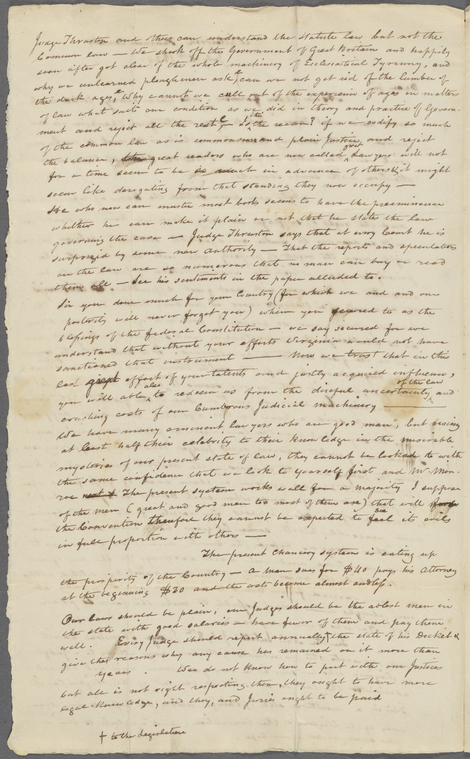 Judge Thruston and others can understand the statute law but not the
Common law — We shook off the Government of Great Britain and happily
soon after got clear of the whole machinery of Ecclesiastical Tyranny, and
why we unlearned ploughmen ask, can we not get rid of the lumber of
the dark ages, Why cannot we cull out of the experience of ages in matter
of law what suits our condition as we did in theory and practice of Govern-
ment and reject all the rest — Is the reason? if we codify so much
of the common law as is common and plain Justice and reject
the balance, great readers who are now called great Lawyers will not
for a time seem to be so much in advance of others & it might
seem like derogating from that standing they now occupy —
He who now can muster most books seems to have the preeminence
whether he can make it plain or not that he state the law
governing the case — Judge Thruston says that at every Court he is
surprized by some new Authority — That the reports and speculations
on the law are so numerous that no man can buy or read
them all — See his sentiments in the paper alluded to.
Sir you done much for your Country (for which we and and our
posterity will never forget you) when you secured to us the
blessings of the federal Constitution — we say secured for we
understand that without your efforts Virginia would not have
sanctioned that instrument — Now we trust that in this
last great effort of your talents and justly acquired influence,
you will able also to redeem us from the direful uncertainty of the law and
crushing costs of our Cumbrous Judicial machinery
We have many eminent lawyers who are good men, but owing
at least half their celebrity to their knowledge in the miserable
mysteries of our present state of law, they cannot be looked to with
the same confidence that we look to yourself first and Mr Mon-
roe next & The present system works well for a majority I suppose
of the men (& great and good men too most of them are) that will
the Convention Therefore they cannot be expected to feel its evils
in full proportion with others —
The present chancery system is eating up
the prosperity of the Country — A man sues for $40 pays his Attorney
at the beginning $30 and the costs become almost endless.
Our Laws should be plain, our Judges should be the ablest men in
the state with good salaries — have fewer of them and pay them
well. Every Judge should report annually † the state of his Docket &
give the reasons why any cause has remained on it more than
years. We do not know how to part with our Justices
but all is not right respecting them, they ought to have more
legal knowledge, and they, and Juries ought to be paid
† to the Legislature